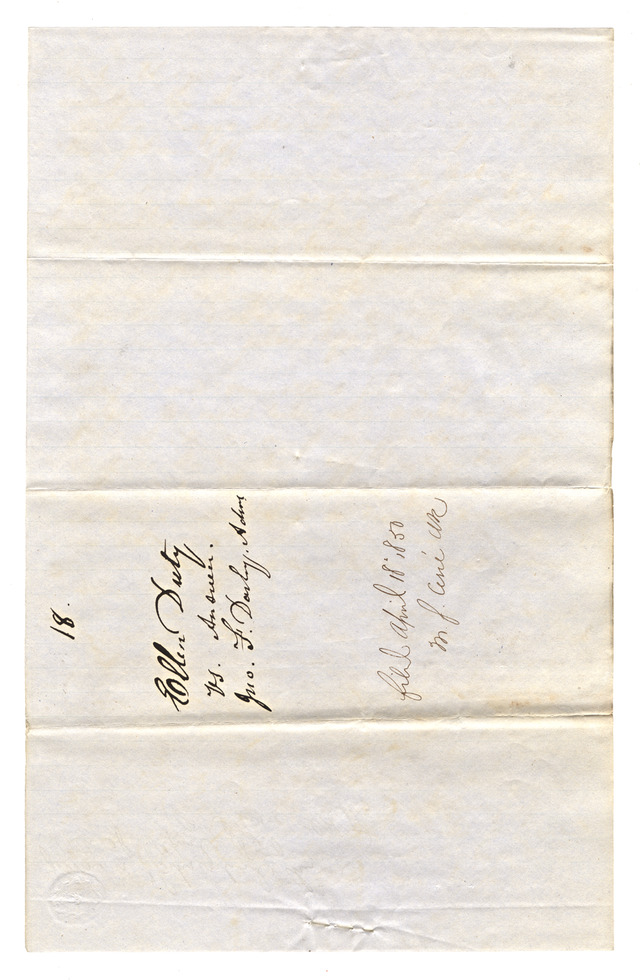 18.
Ellen Duty
vs. Answer.
Jno. F. Darby, Admr
filed April 18" 1850
M J. Ciné Clk